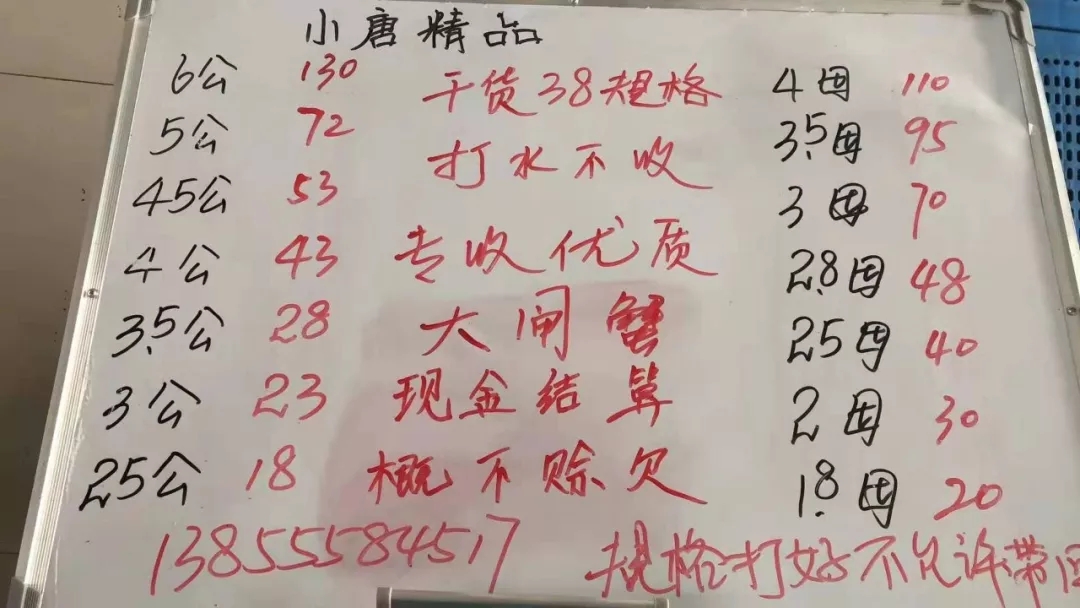 小唐精品
6公 130 干货38规格 4母 110
5公 72 打水不收 3.5母 95
45公 53 3母 70
4公 43 专收优质 2.8母 48
3.5公 28 大闸蟹 25母 40
3公 23 现金结算 2母 30
25公 18 概不赊欠 1.8母 20
13855584517 规格打好不允许带回